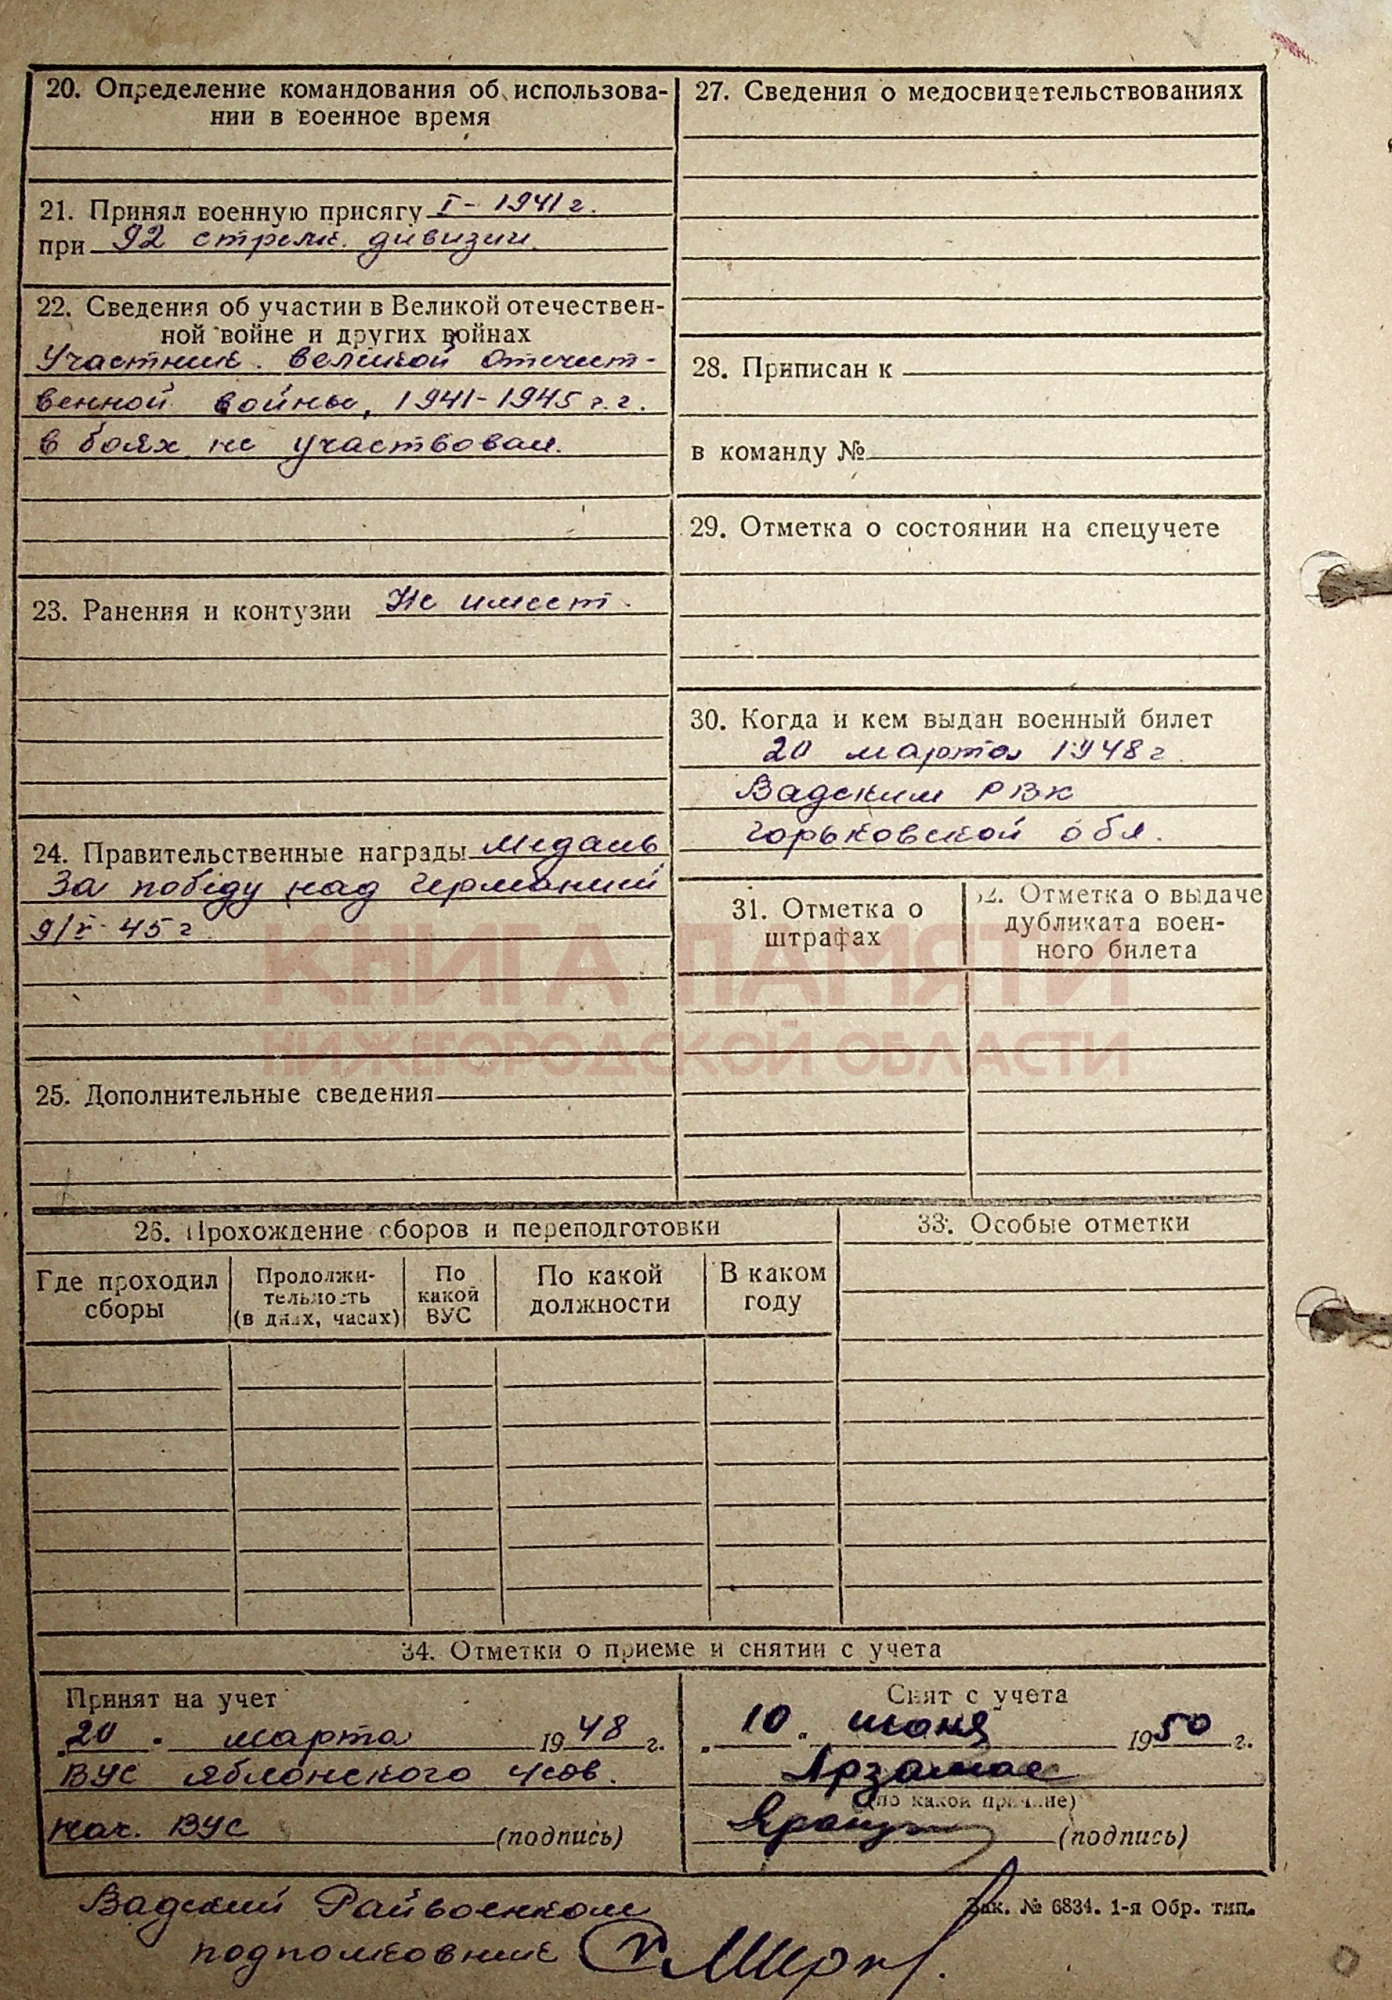 20. Определение командования об использова-
нии в военное время
21. Принял военную присягу I - 1941 г.
при 92 стрелк. дивизии
22. Сведения об участии в Великой отечествен-
ной войне и других войнах
Участник великой отечест-
венной войны, 1941-1945 г.г.
в боях не участвовал.
23. Ранения и контузии Не имеет.
24. Правительственные награды Медаль
За победу над Германией
9/V-45 г.
25. Дополнительные сведения
27. Сведения о медосвидетельствованиях
28. Приписан к
в команду №
29. Отметка о состоянии на спецучете
30. Когда и кем выдан военный билет
20 марта 1948 г.
Вадским РВК
Горьковской обл.
31. Отметка о
штрафах
32. Отметка о выдаче
дубликата воен-
ного билета
КНИГА ПАМЯТИ
НИЖЕГОРОДСКОЙ ОБЛАСТИ
26. Прохождение сборов и переподготовки
Где проходил
сборы
Продолжи-
тельность
(в днях, часах)
По
какой
ВУС
По какой
должности
В каком
году
33. Особые отметки
34. Отметки о приеме и снятии с учета
Принят на учет
20 марта 1948 г.
ВУС Яблонского
Нач. ВУС (подпись)
Снят с учета
"10" июня 1950 г.
Арзамас
(по какой причине)
(подпись)
Вадский Райвоенком
подполковник
Зак. № 6834. 1-я Обр. тип.